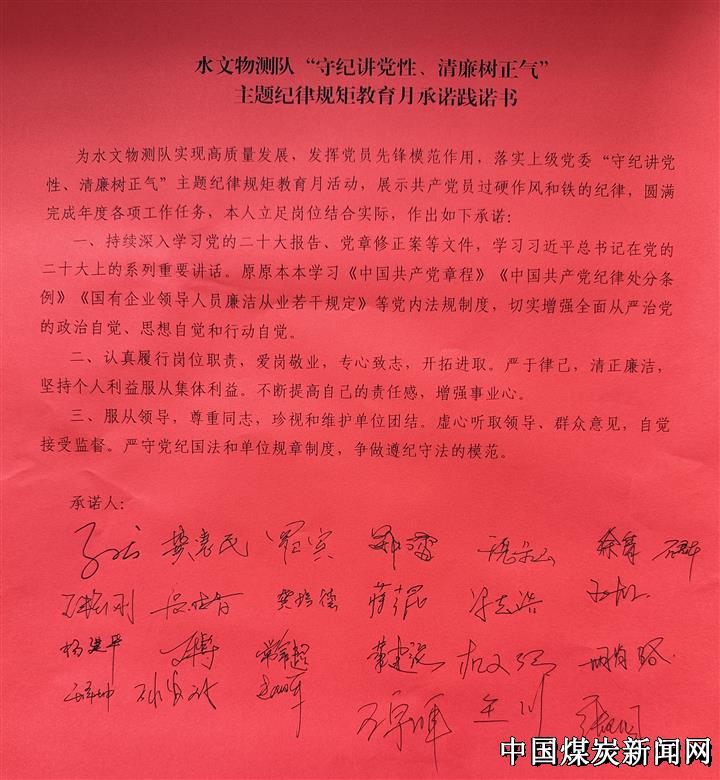 水文物测队“守纪讲党性、清廉树正气”
主题纪律规矩教育月承诺践诺书
为水文物测队实现高质量发展，发挥党员先锋模范作用，落实上级党委“守纪讲党
性、清廉树正气”主题纪律规矩教育月活动，展示共产党员过硬作风和铁的纪律，圆满
完成年度各项工作任务，本人立足岗位结合实际，作出如下承诺：
一、持续深入学习党的二十大报告、党章修正案等文件，学习习近平总书记在党的
二十大上的系列重要讲话。原原本本学习《中国共产党章程》《中国共产党纪律处分条
例》《国有企业领导人员廉洁从业若干规定》等党内法规制度，切实增强全面从严治党
的政治自觉、思想自觉和行动自觉。
二、认真履行岗位职责，爱岗敬业，专心致志，开拓进取。严于律己，清正廉洁，
坚持个人利益服从集体利益。不断提高自己的责任感，增强事业心。
三、服从领导，尊重同志，珍视和维护单位团结。虚心听取领导、群众意见，自觉
接受监督。严守党纪国法和单位规章制度，争做遵纪守法的模范。
承诺人：
樊惠民 罗宾 郑雷
龚培德
杨建平
王川
中国煤炭新闻网